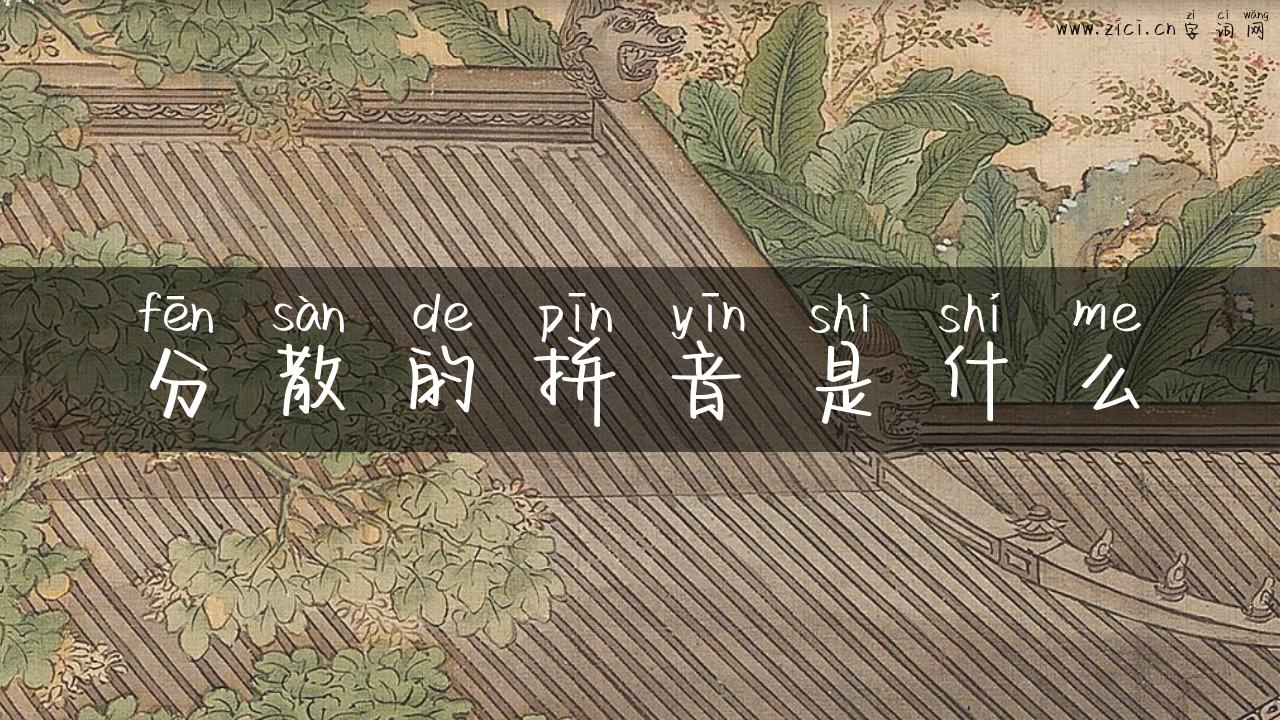 zì cí wǎng
www.zici.cn 字词网
fēn sàn de pīn yīn shì shí me
分散的拼音是什么